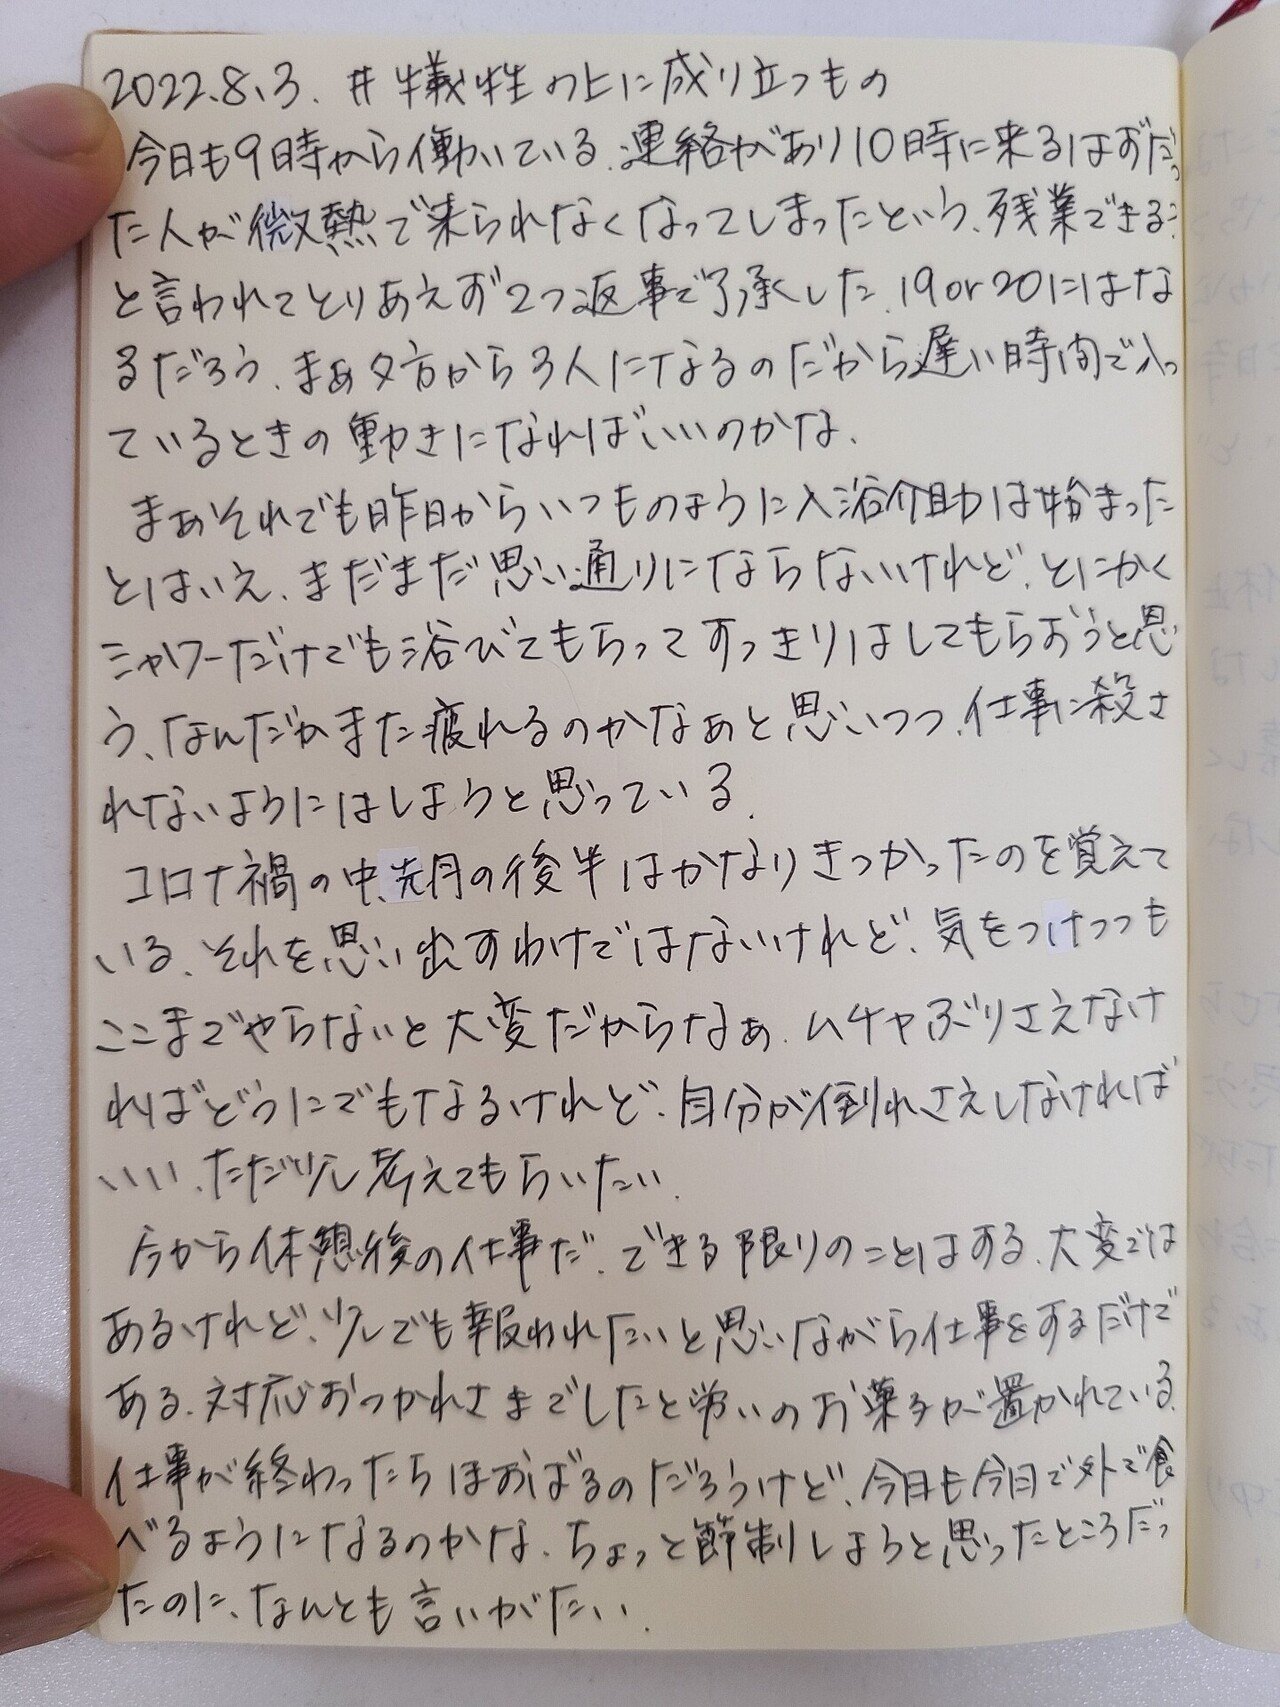 2022.8.3. #犠牲の上に成り立つもの
今日も9時から働いている。連絡があり10時に来るはずだっ
た人が微熱で来られなくなってしまったという。残業できる?
と言われてとりあえず2つ返事で了承した。19or20にはな
るだろう。まぁ夕方から3人になるのだから遅い時間で入っ
ているときの動きになればいいのかな。
まぁそれでも昨日からいつものように入浴介助は始まった
とはいえ、まだまだ思い通りにならないけれど、とにかく
シャワーだけでも浴びてもらってすっきりはしてもらおうと思
う、なんだかまた疲れるのかなぁと思いつつ、仕事に殺さ
れないようにはしようと思っている。
コロナ禍の中、先月の後半はかなりきつかったのを覚えて
いる、それを思い出すわけではないけれど、気をつけつつも
ここまでやらないと大変だからなぁ、ムチャぶりさえなけ
ればどうにでもなるけれど、自分が倒れさえしなければ
いい、ただ少し考えてもらいたい。
今から休憩後の仕事だ、できる限りのことはする、大変では
あるけれど、少しでも報われたいと思いながら仕事をするだけで
ある、対応おつかれさまでしたと労いのお菓子が置かれている。
仕事が終わったらほおばるのだろうけど、今日も今日で外で食
べるようになるのかな、ちょっと節制しようと思ったところだっ
たのに、なんとも言いがたい。